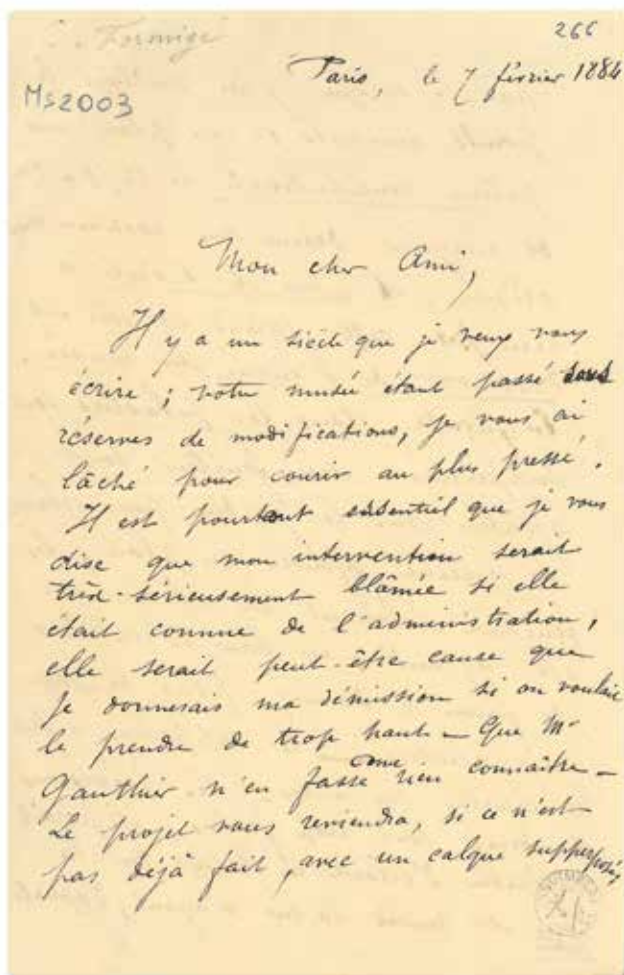 C. Formigé
266
Ms 2003
Paris, le 7 février 1884
Mon cher Ami,
Il y a un siècle que je veux vous
écrire ; votre musée étant passé sous
réserves de modifications, je vous ai
lâché pour courir au plus pressé.
Il est pourtant essentiel que je vous
dise que mon intervention serait
très-sérieusement blâmée si elle
était connue de l'administration,
elle serait peut-être cause que
je donnerais ma démission si on voulait
le prendre de trop haut — Que Mr
Gauthier n'en fasse donc rien connaître —
Le projet vous reviendra, si ce n'est
pas déjà fait, avec un calque supperposé,